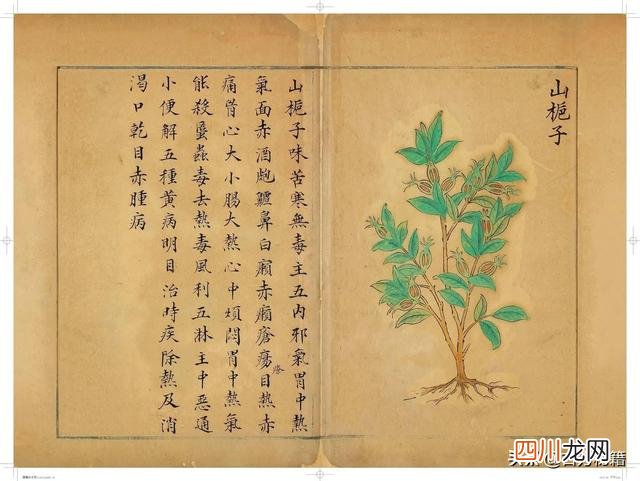 山梔子
山梔子味苦寒無毒主五內邪氣胃中熱
氣面赤酒皰鼻白癩赤癩瘡瘍目熱赤
痛胷心大小腸大熱心中煩悶胃中熱氣
能殺蟲毒去熱毒風利五淋主中惡通
小便解五種黃病明目治時疾除熱及消
渴口乾目赤腫病
四川龙网